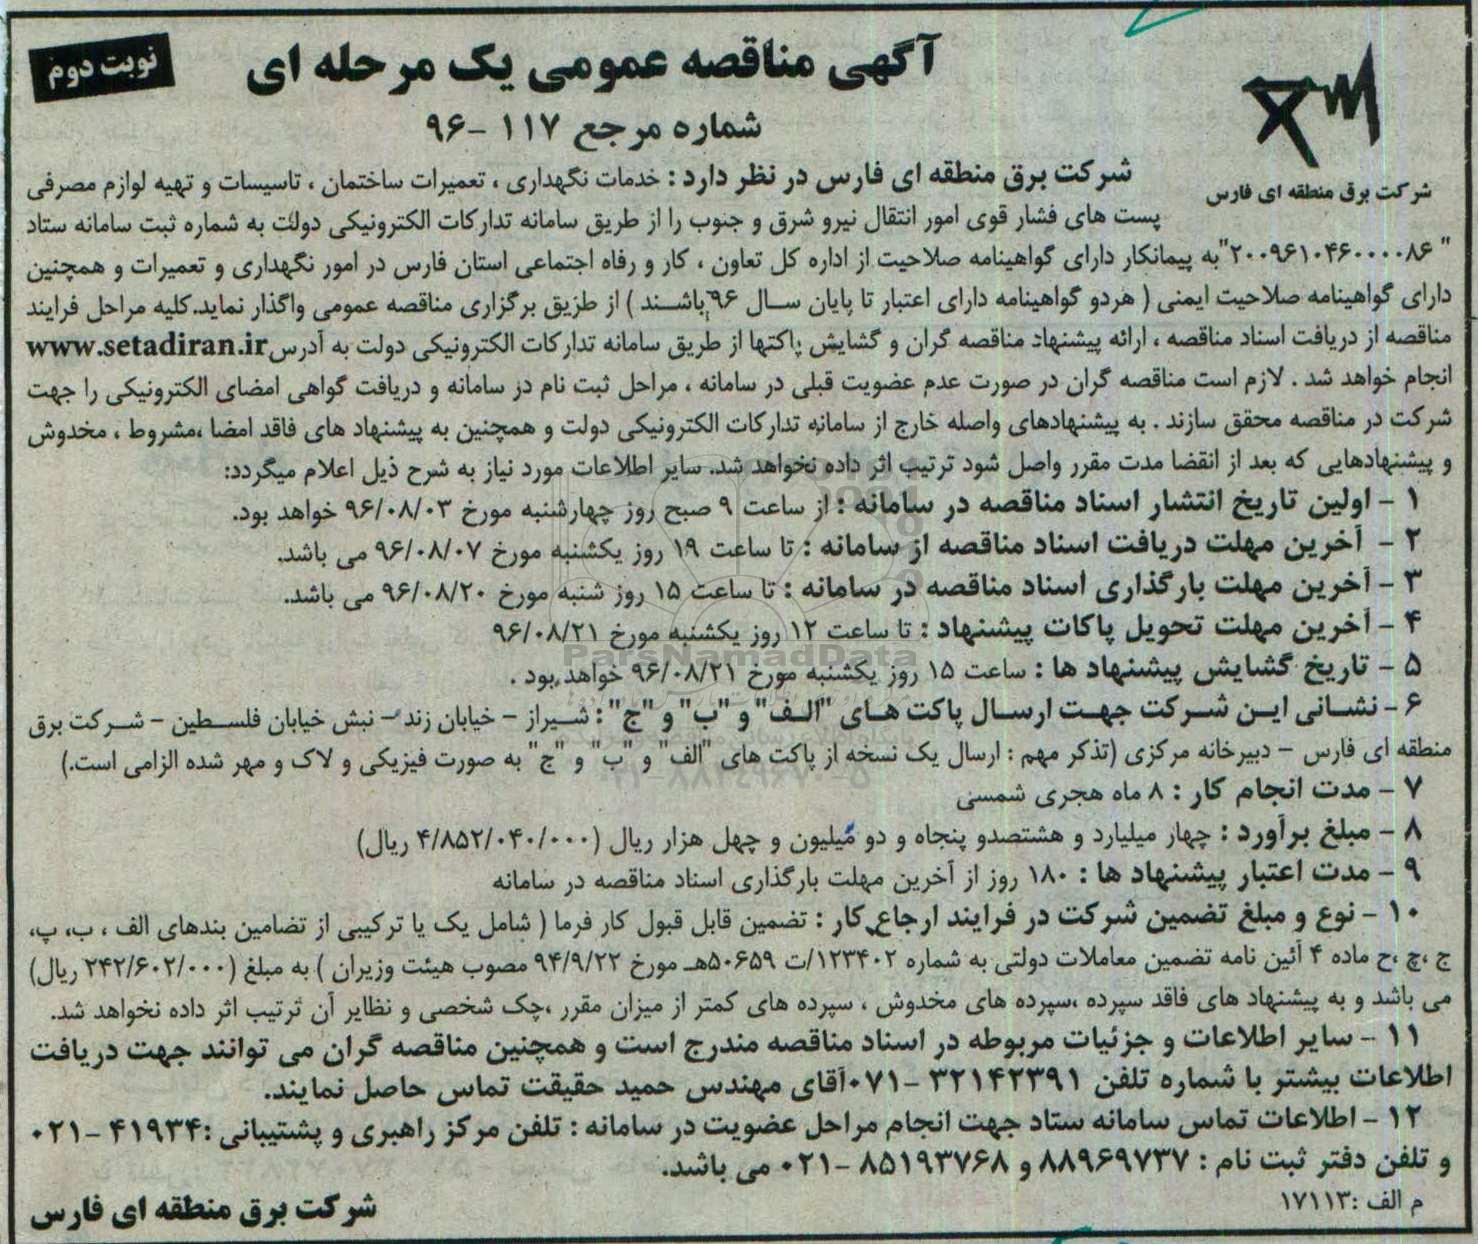 آگهی مناقصه عمومی یک مرحله ای
نوبت دوم
شماره مرجع ۱۱۷ -۹۶
شرکت برق منطقه ای فارس
شرکت برق منطقه ای فارس در نظر دارد : خدمات نگهداری ، تعمیرات ساختمان ، تاسیسات و تهیه لوازم مصرفی
پست های فشار قوی امور انتقال نیرو شرق و جنوب را از طریق سامانه تدارکات الکترونیکی دولت به شماره ثبت سامانه ستاد
" ۲۰۰۹۶۱۰۴۶۰۰۰۰۸۶"به پیمانکار دارای گواهینامه صلاحیت از اداره کل تعاون ، کار و رفاه اجتماعی استان فارس در امور نگهداری و تعمیرات و همچنین
دارای گواهینامه صلاحیت ایمنی ( هردو گواهینامه دارای اعتبار تا پایان سال ۹۶ باشند ) از طزیق برگزاری مناقصه عمومی واگذار نماید.کلیه مراحل فرایند
مناقصه از دریافت اسناد مناقصه ، ارائه پیشنهاد مناقصه گران و گشایش پاکتها از طریق سامانه تدارکات الکترونیکی دولت به آدرس www.setadiran.ir
انجام خواهد شد . لازم است مناقصه گران در صورت عدم عضویت قبلی در سامانه ، مراحل ثبت نام در سامانه و دریافت گواهی امضای الکترونیکی را جهت
شرکت در مناقصه محقق سازند . به پیشنهادهای واصله خارج از سامانه تدارکات الکترونیکی دولت و همچنین به پیشنهاد های فاقد امضا ،مشروط ، مخدوش
و پیشنهادهایی که بعد از انقضا مدت مقرر واصل شود ترتیب اثر داده نخواهد شد. سایر اطلاعات مورد نیاز به شرح ذیل اعلام میگردد:
۱ - اولین تاریخ انتشار اسناد مناقصه در سامانه : از ساعت ۹ صبح روز چهارشنبه مورخ ۹۶/۰۸/۰۳ خواهد بود.
۲ - آخرین مهلت دریافت اسناد مناقصه از سامانه : تا ساعت ۱۹ روز یکشنبه مورخ ۹۶/۰۸/۰۷ می باشد.
۳ - آخرین مهلت بارگذاری اسناد مناقصه در سامانه : تا ساعت ۱۵ روز شنبه مورخ ۹۶/۰۸/۲۰ می باشد.
۴ - آخرین مهلت تحویل پاکات پیشنهاد : تا ساعت ۱۲ روز یکشنبه مورخ ۹۶/۰۸/۲۱
ParsNamadData
۵ - تاریخ گشایش پیشنهاد ها : ساعت ۱۵ روز یکشنبه مورخ ۹۶/۰۸/۲۱ خواهد بود .
۶ - نشانی این شرکت جهت ارسال پاکت های "الف" و "ب" و "ج" : شیراز - خیابان زند - نبش خیابان فلسطین - شرکت برق
منطقه ای فارس - دبیرخانه مرکزی (تذکر مهم : ارسال یک نسخه از پاکت های "الف" و "ب" و "ج" به صورت فیزیکی و لاک و مهر شده الزامی است.)
۷ - مدت انجام کار : ۸ ماه هجری شمسی
۸ - مبلغ برآورد : چهار میلیارد و هشتصدو پنجاه و دو میلیون و چهل هزار ریال (۴/۸۵۲/۰۴۰/۰۰۰ ریال)
۹ - مدت اعتبار پیشنهاد ها : ۱۸۰ روز از آخرین مهلت بارگذاری اسناد مناقصه در سامانه
۱۰ - نوع و مبلغ تضمین شرکت در فرایند ارجاع کار : تضمین قابل قبول کار فرما ( شامل یک یا ترکیبی از تضامین بندهای الف ، ب، پ،
ج ،چ ،ح ماده ۴ آئین نامه تضمین معاملات دولتی به شماره ۱۲۳۴۰۲/ت ۵۰۶۵۹هـ مورخ ۹۴/۹/۲۲ مصوب هیئت وزیران ) به مبلغ (۲۴۲/۶۰۲/۰۰۰ ریال)
می باشد و به پیشنهاد های فاقد سپرده ،سپرده های مخدوش ، سپرده های کمتر از میزان مقرر ،چک شخصی و نظایر آن ترتیب اثر داده نخواهد شد.
۱۱ - سایر اطلاعات و جزئیات مربوطه در اسناد مناقصه مندرج است و همچنین مناقصه گران می توانند جهت دریافت
اطلاعات بیشتر با شماره تلفن ۳۲۱۴۲۳۹۱ -۰۷۱آقای مهندس حمید حقیقت تماس حاصل نمایند.
۱۲ - اطلاعات تماس سامانه ستاد جهت انجام مراحل عضویت در سامانه : تلفن مرکز راهبری و پشتیبانی :۴۱۹۳۴ -۰۲۱
و تلفن دفتر ثبت نام : ۸۸۹۶۹۷۳۷ و ۸۵۱۹۳۷۶۸ -۰۲۱ می باشد.
م الف :۱۷۱۱۳
شرکت برق منطقه ای فارس